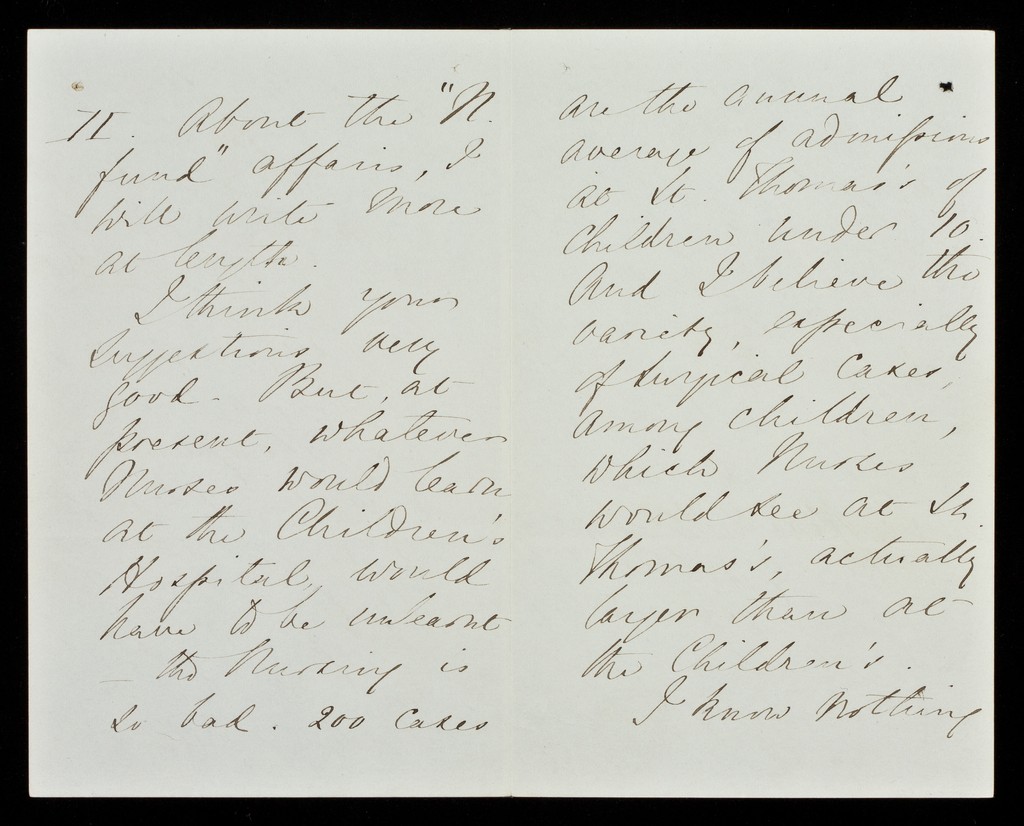 II. About the "N.
fund" affairs, I
will write more
at length.
I think your
suggestions very
good. But, at
present, whatever
Nurses would learn
at the Children's
Hospital, would
have to be unlearnt
— the Nursing is
so bad. 200 cases
are the annual
average of admissions
at St. Thomas's of
children under 10.
And I believe the
variety, especially
of surgical cases,
among children,
which Nurses
would see at St.
Thomas's, actually
larger than at
the Children's.
I know nothing